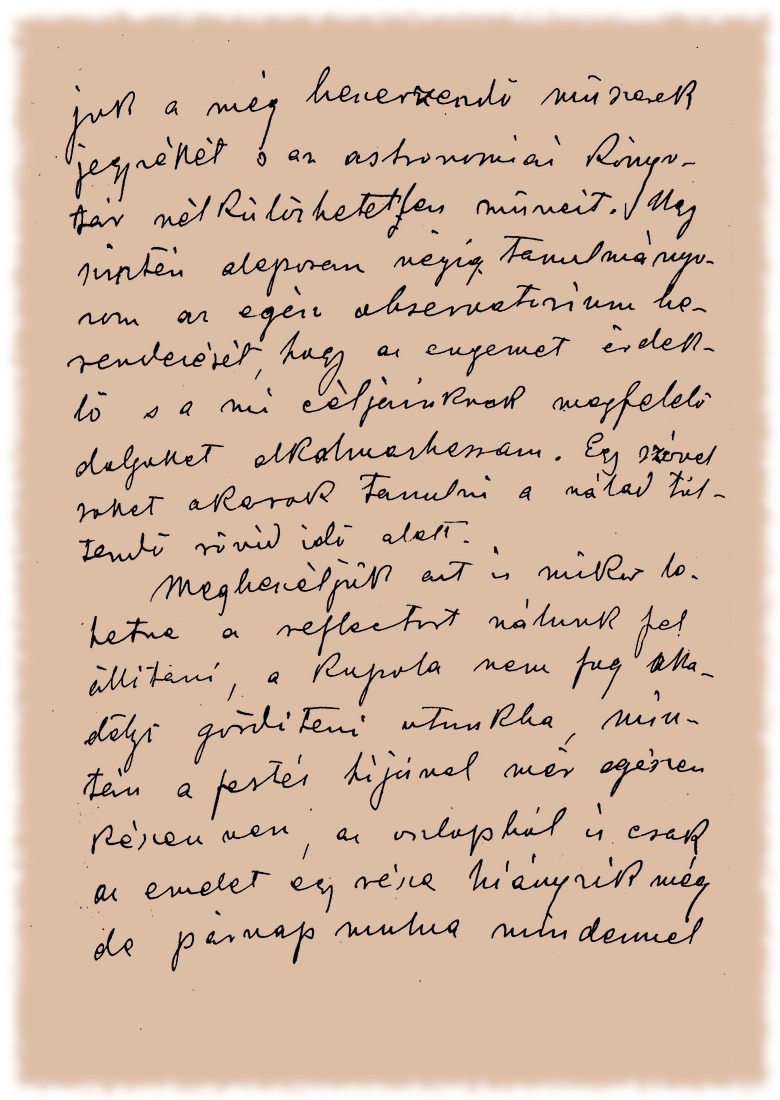 juk a még beszerzendő műszerek
jegyzékét s az astronomiai könyv-
tár nélkülözhetetlen műveit. Úgy
szintén alaposan végig tanulmányo-
zom az egész observatorium be-
rendezését, hogy az engemet érdek-
lő s a mi céljainknak megfelelő
dolgokat alkalmazhassam. Egy szóval
sokat akarok tanulni a nálad töl-
tendő rövid idő alatt.
Megbeszéljük azt is mikor le-
hetne a reflectort nálunk fel
állítani, a kupola nem fog aka-
dályt gördíteni utunkba, min-
tán a festés híjával már egészen
készen van, az oszlopból is csak
az emelet egy része hiányzik még
de párnap mulva mindennel